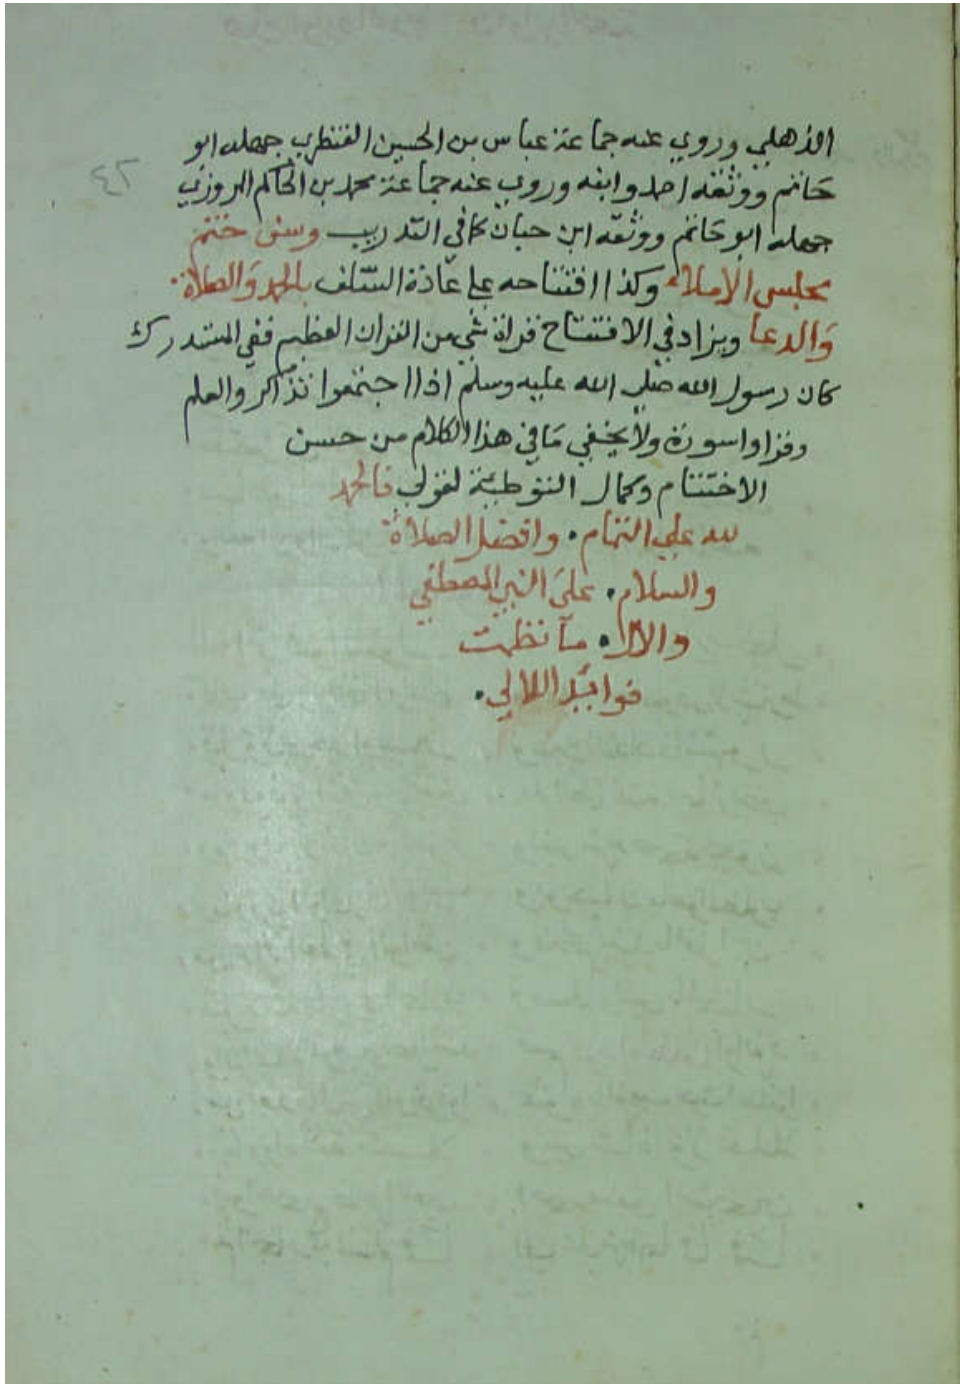 الذهلي وروي عنه جماعة عباس بن الحسين القنطري جهله ابو
حَاتم ووثقه احمد وابنه وروي عنه جماعة محمد بن الحاكم المروزي
جهله ابو حَاتم ووثقه ابن حبان كما في التدريب وسن ختم
مجلس الاملاء وكذا افتتاحه علي عَادة السّلف بالحمد وَالصلاة
وَالدعا ويزاد في الافتتاح قراة شي من القران العظيم ففي المستدرك
كان رسول الله صلي الله عليه وسلم اذا اجتمعوا تذاكروا العلم
وقراوا سورة ولا يخفي مَا في هذا الكلام من حسن
الاختتام وكمال التوطئة لقولي فالحمد
لله علي التمام. وافضل الصلاة
والسلام. علىَ النبي المصطفي
والال. مآ نظمت
فوائد اللالي.